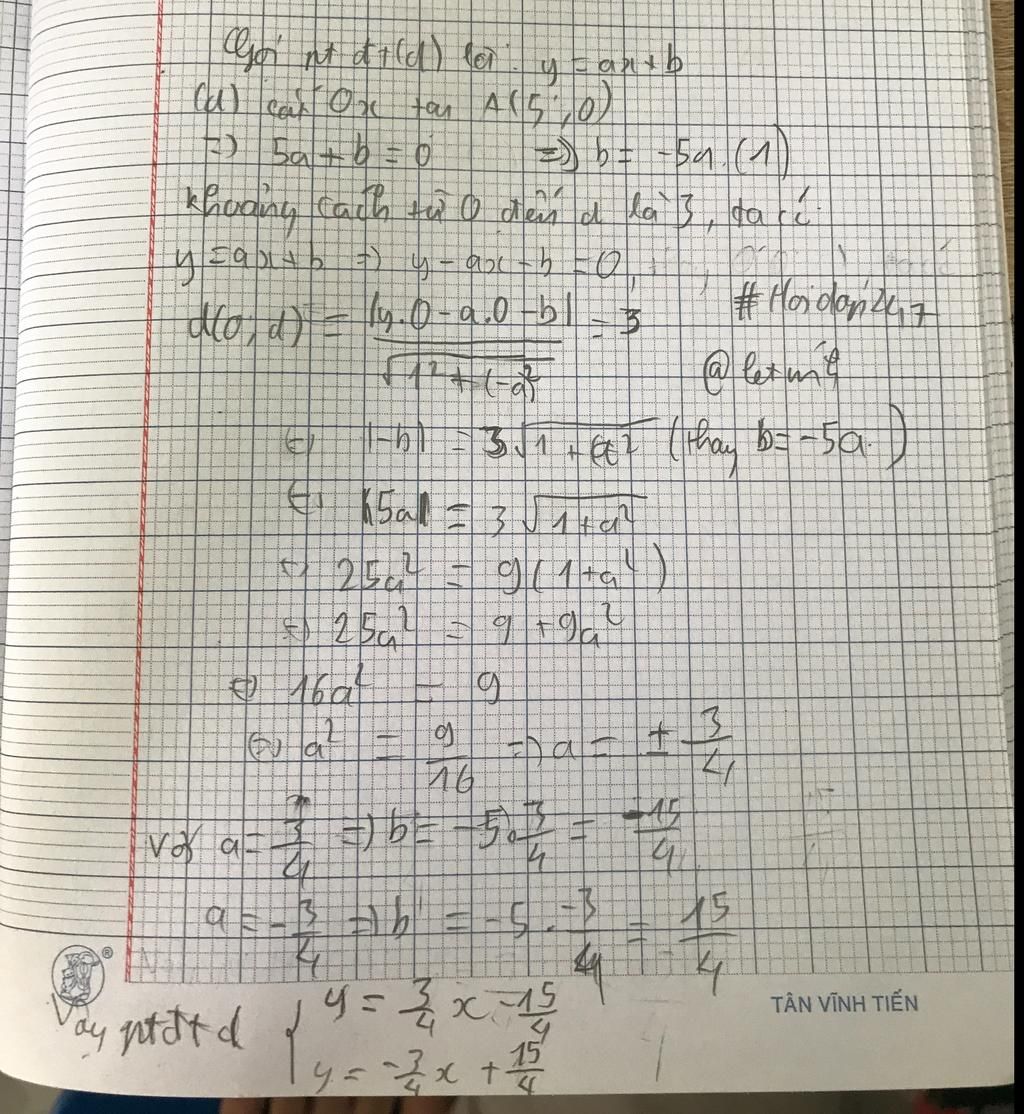 Gọi pt đt(d) là: y = ax + b
(d) cắt Ox tại A(5;0)
=> 5a + b = 0 => b = -5a (1)
khoảng cách từ O đến d là 3, ta có:
y = ax + b => y - ax - b = 0
d(O;d) = |y.0 - a.0 - b| / √(1² + (-a)²) = 3
#Hoidap247
⇔ |-b| = 3√(1 + a²) (thay b = -5a)
⇔ |5a| = 3√(1 + a²)
⇔ 25a² = 9(1 + a²)
⇔ 25a² = 9 + 9a²
⇔ 16a² = 9
⇔ a² = 9/16 => a = ± 3/4
Với a = 3/4 => b = -5.3/4 = -15/4
a = -3/4 => b = -5.-3/4 = 15/4
Vậy ptđt d { y = 3/4 x - 15/4
y = -3/4 x + 15/4
TÂN VĨNH TIẾN